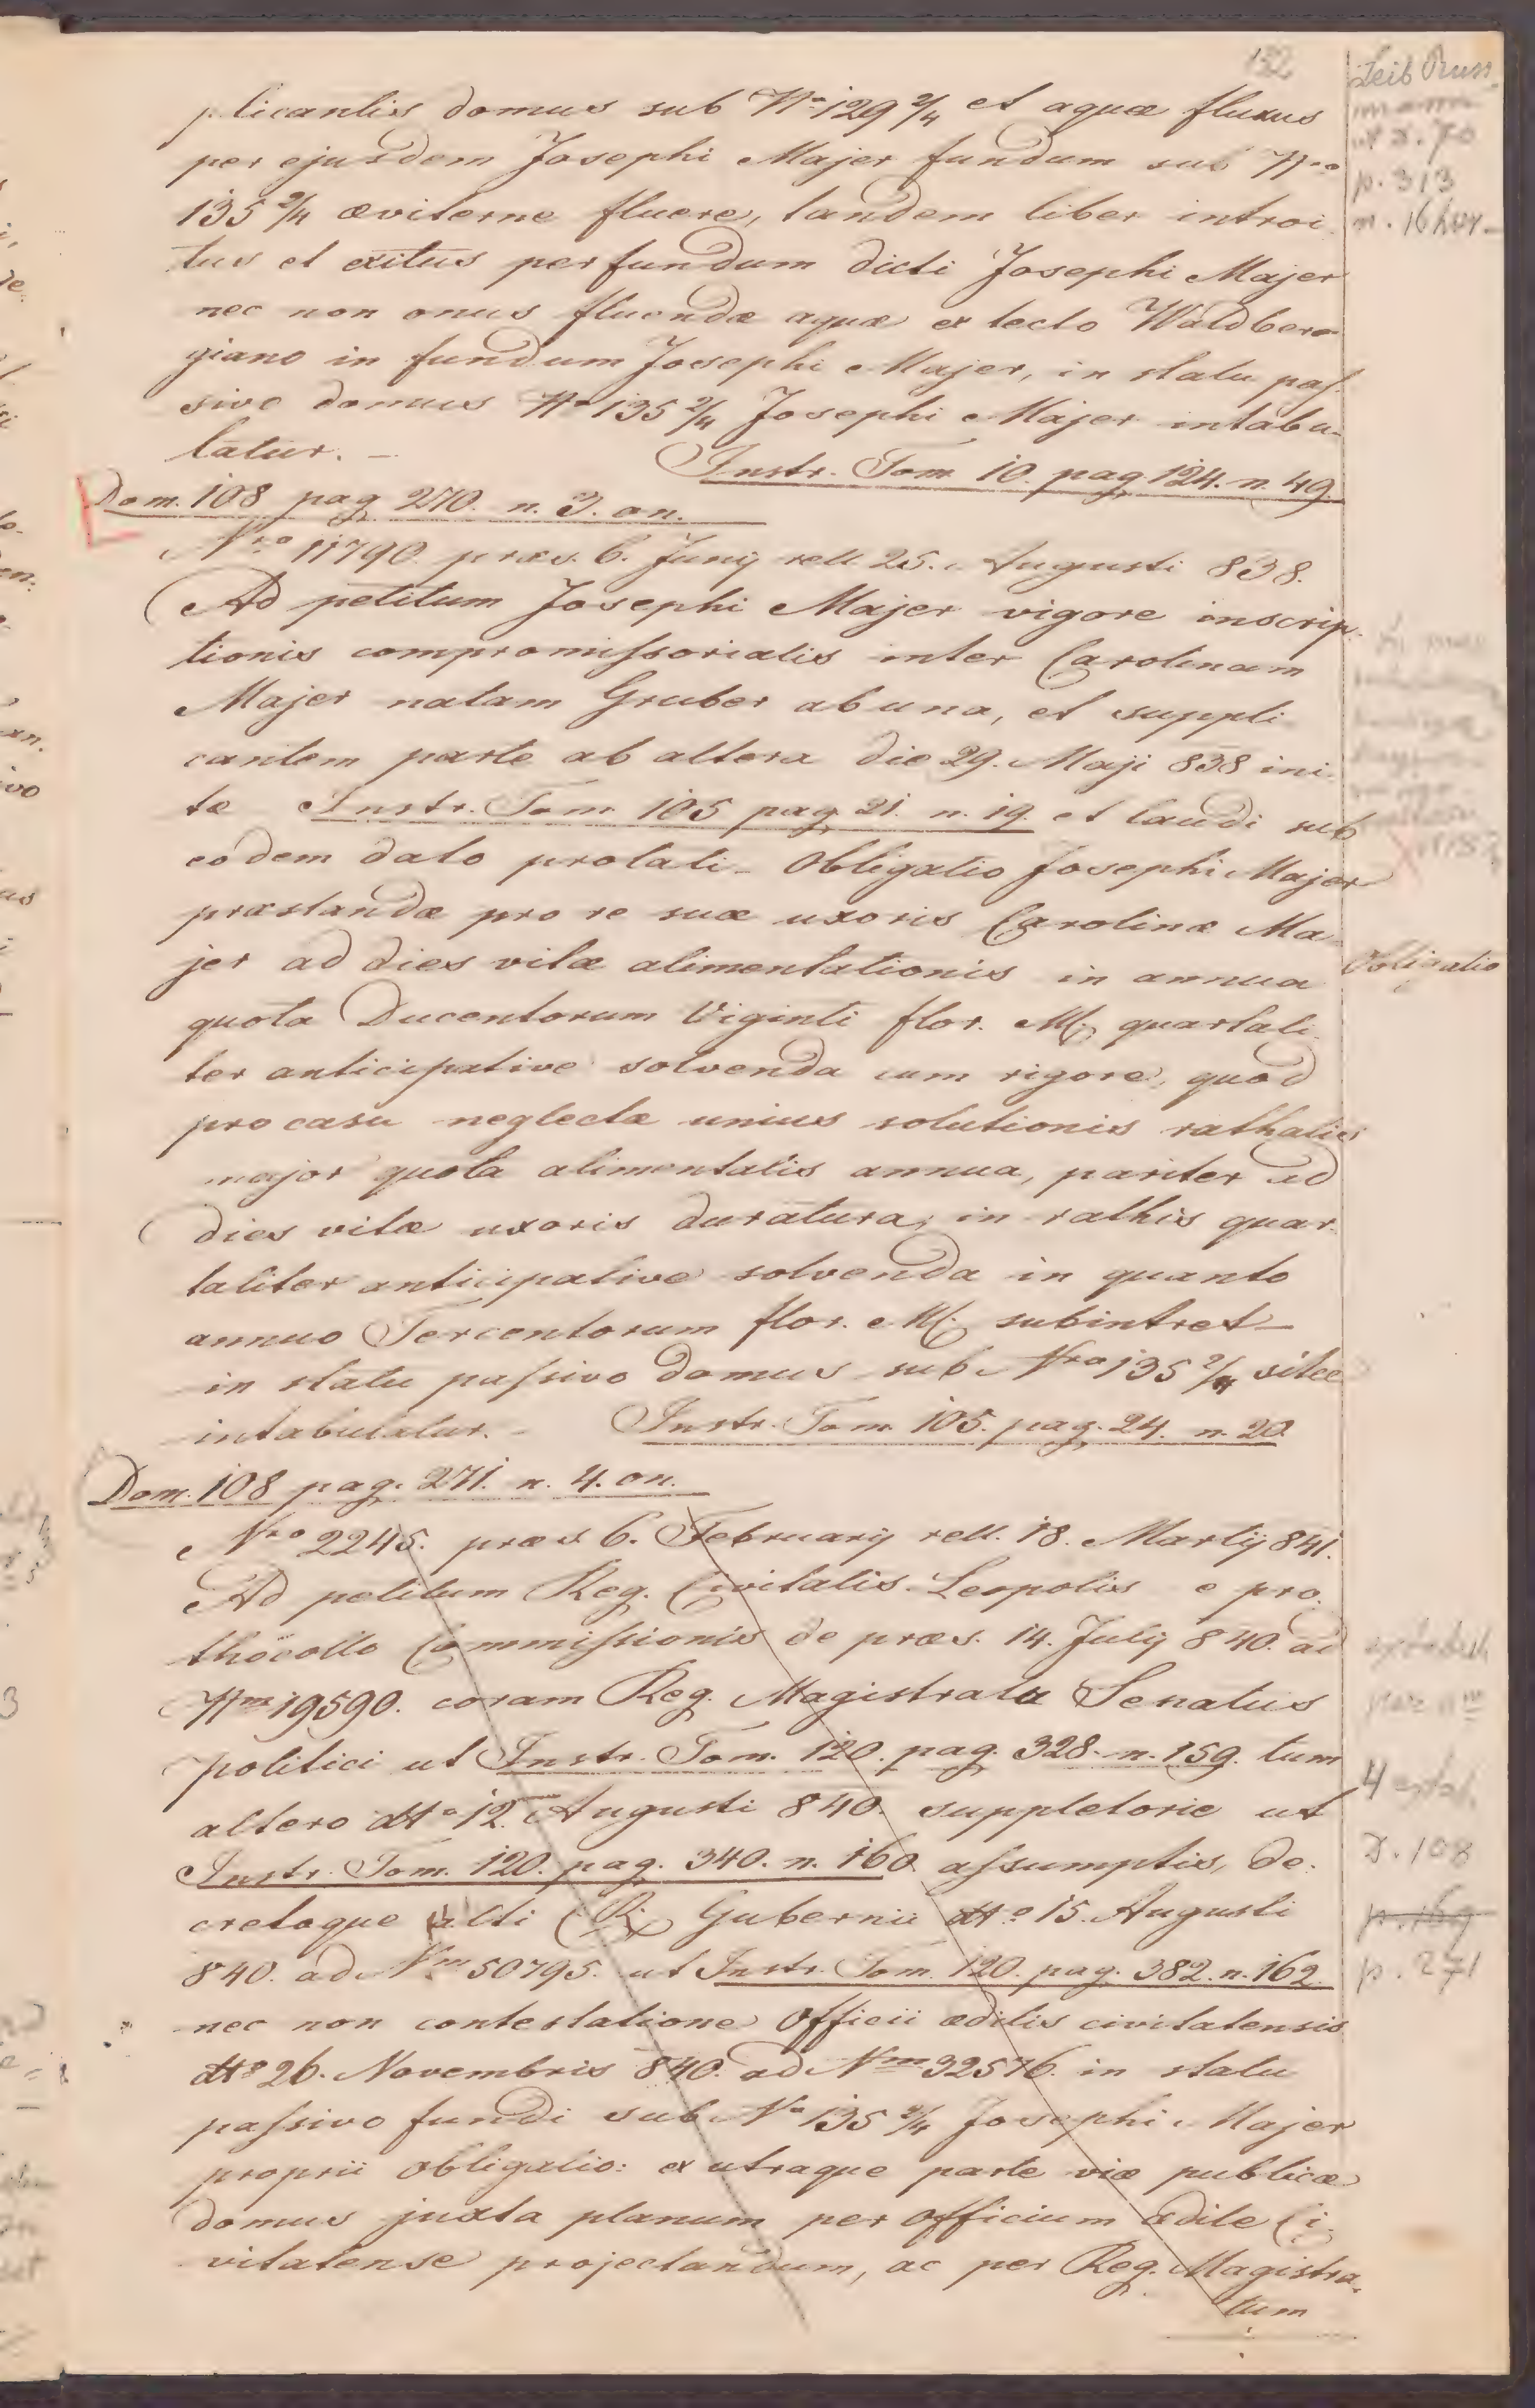 132
plicantis domus sub No 129 2/4 et aquæ fluxus
per ejusdem Josephi Majer fundum sub Nro
135 2/4 æviterne fluere, tandem liber introi
tus et exitus per fundum dicti Josephi Majer
nec non onus fluendæ aquæ ex tecto Waldber
giano in fundum Josephi Majer, in statu pas
sivo domus No 135 2/4 Josephi Majer intabu-
latur. -
Instr. Tom 10. pag 124. n. 49.
Dom. 108 pag 270. n. 3. on.
Nro 11790 præs. 6. Junij rell 25. Augusti 838.
Ad petitum Josephi Majer vigore inscrip-
tionis compromissorialis inter Carolinam
Majer natam Gruber ab una, et suppli
cantem parte ab altera die 29. Maji 838 ini
tæ Instr. Tom 105 pag 21. n. 19. et laudi sub
eodem dato prolati - Obligatio Josephi Majer
præstandæ pro re suæ uxoris Carolinæ Ma
jer ad dies vitæ alimentationis in annua
quota Ducentorum Viginti flor. M. quartali
ter anticipative solvenda cum rigore, quod
pro casu neglectæ unius solutionis rathalis
major quota alimentalis annua, pariter ad
dies vitæ uxoris duratura, in rathis quar
taliter anticipative solvenda in quanto
annuo Tercentorum flor. M. subintret -
in statu passivo domus sub Nro 135 2/4 sitæ
intabulatur. - Instr. Tom. 105. pag. 24. n. 20
Dom. 108 pag. 271. n. 4. on.
Nro 2245. præs 6. Februarij rell. 18. Martij 841.
Ad petitum Reg. Civitatis Leopolis e pro
thocollo Commissionis de præs. 14. Julij 840. ad
Nm 19590. coram Reg. Magistratu Senatus
politici ut Instr. Tom. 120. pag. 328. n. 159. tum
altero dto 12. Augusti 840. suppletorie ut
Instr. Tom. 120. pag. 340. n. 160 assumptis, de-
cretoque alti Gubernii dto 15. Augusti
840. ad Nm 50795. ut Instr. Tom 120. pag. 382. n. 162
nec non contestatione Officii ædilis civitatensis
dto 26. Novembris 840. ad Nm 32576. in statu
passivo fundi sub No 135 2/4 Josephi Majer
proprii obligatio: ex utraque parte viæ publicæ
domus juxta planum per officium ædile Ci-
vitatense projectandum, ac per Reg. Magistra-
tum
Leib
p. 313
n. 16 hær.
Obligatio
4
D. 108
p. 169
p. 271